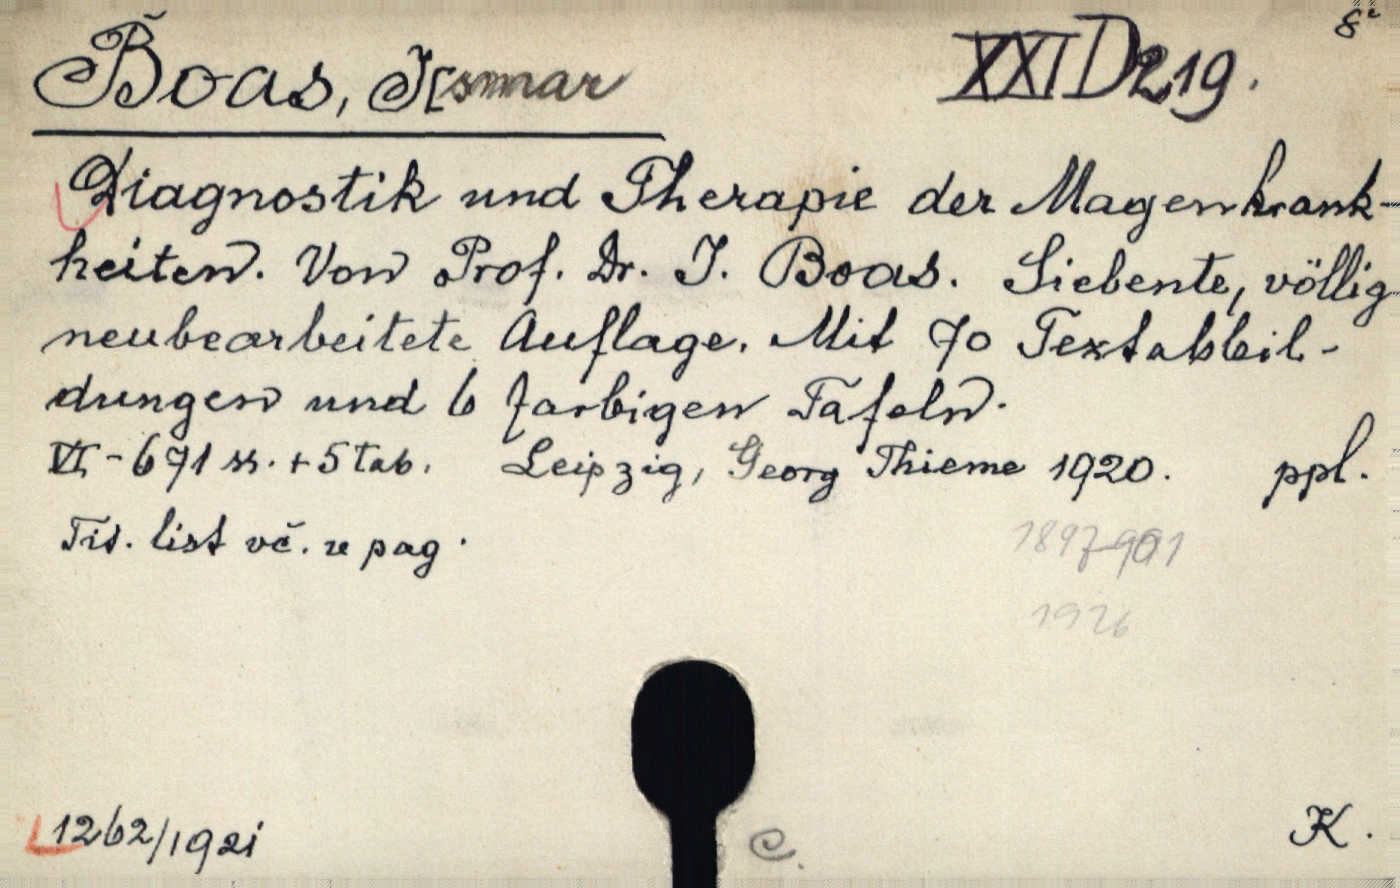 8°
Boas, I[smar
XXI D 219.
Diagnostik und Therapie der Magenkrank-
heiten. Von Prof. Dr. I. Boas. Siebente, völlig
neubearbeitete Auflage. Mit 70 Textabbil-
dungen und 6 farbigen Tafeln.
VI - 671 ss. + 5 tab. Leipzig, Georg Thieme 1920. ppl.
Tit. list vč. v pag.
1926
1262/1921
C.
K.